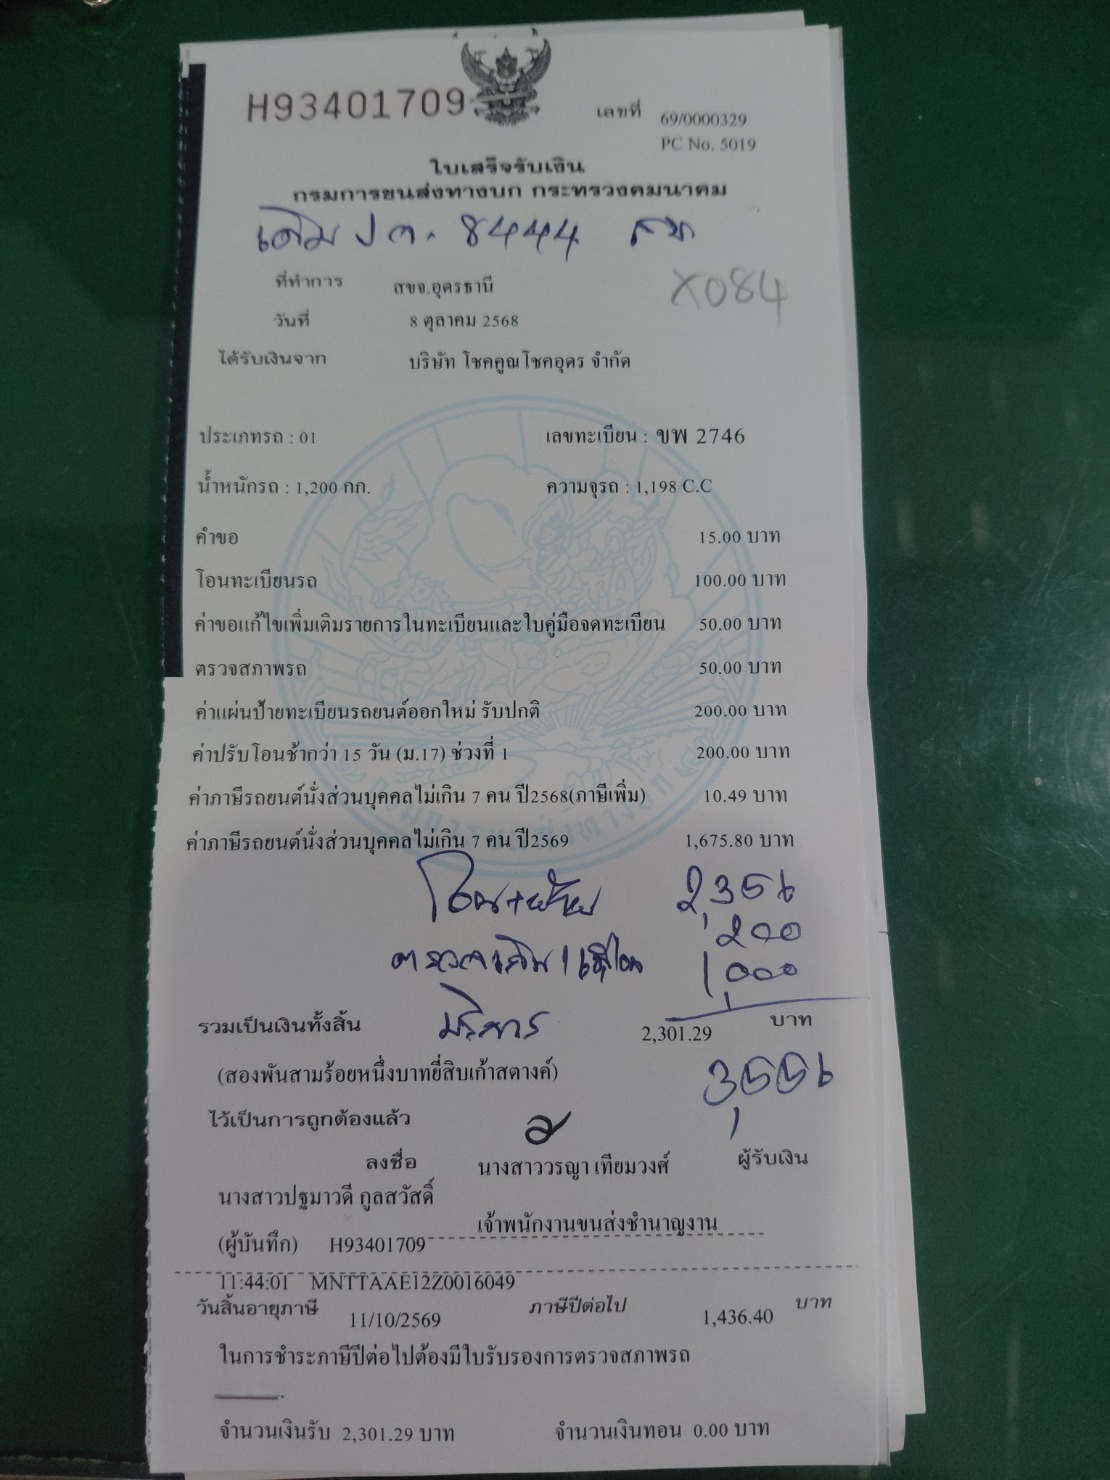 H93401709
เลขที่ 69/0000329
PC No. 5019
ใบเสร็จรับเงิน
กรมการขนส่งทางบก กระทรวงคมนาคม
เดิม 8444
ที่ทำการ สขจ.อุดรธานี
X084
วันที่ 8 ตุลาคม 2568
ได้รับเงินจาก บริษัท โชคคูณโชคอุดร จำกัด
ประเภทรถ : 01 เลขทะเบียน : ขพ 2746
น้ำหนักรถ : 1,200 กก. ความจุรถ : 1,198 C.C
คำขอ 15.00 บาท
โอนทะเบียนรถ 100.00 บาท
ค่าขอแก้ไขเพิ่มเติมรายการในทะเบียนและใบคู่มือจดทะเบียน 50.00 บาท
ตรวจสภาพรถ 50.00 บาท
ค่าแผ่นป้ายทะเบียนรถยนต์ออกใหม่ รับปกติ 200.00 บาท
ค่าปรับโอนช้ากว่า 15 วัน (ม.17) ช่วงที่ 1 200.00 บาท
ค่าภาษีรถยนต์นั่งส่วนบุคคลไม่เกิน 7 คน ปี2568(ภาษีเพิ่ม) 10.49 บาท
ค่าภาษีรถยนต์นั่งส่วนบุคคลไม่เกิน 7 คน ปี2569 1,675.80 บาท
โอน+ย้าย 2,356
200
1,000
รวมเป็นเงินทั้งสิ้น บริการ 2,301.29 บาท
(สองพันสามร้อยหนึ่งบาทยี่สิบเก้าสตางค์) 3,556
ไว้เป็นการถูกต้องแล้ว
ลงชื่อ นางสาววรญา เทียมวงศ์ ผู้รับเงิน
นางสาวปฐมาวดี กูลสวัสดิ์
เจ้าพนักงานขนส่งชำนาญงาน
(ผู้บันทึก) H93401709
11:44:01 MNTTAAE12Z0016049
วันสิ้นอายุภาษี 11/10/2569 ภาษีปีต่อไป 1,436.40 บาท
ในการชำระภาษีปีต่อไปต้องมีใบรับรองการตรวจสภาพรถ
จำนวนเงินรับ 2,301.29 บาท จำนวนเงินทอน 0.00 บาท